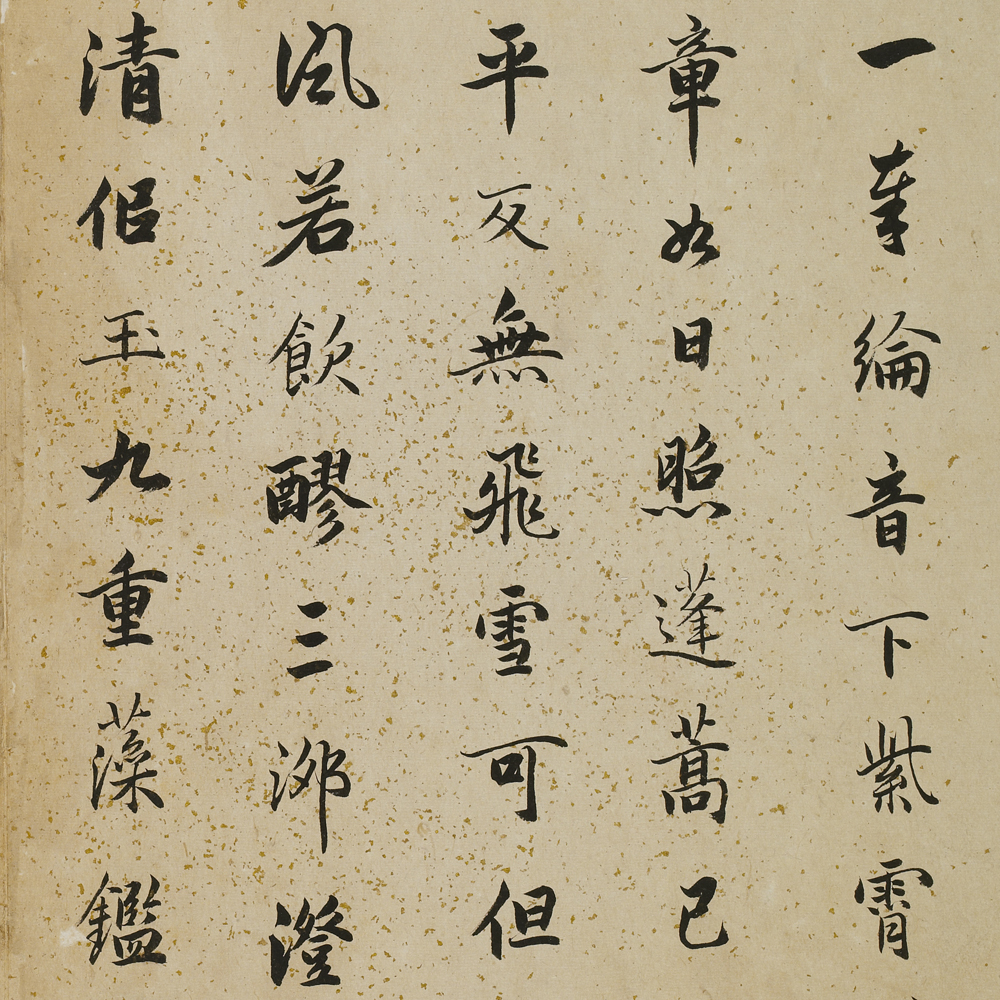 一奉綸音下紫霄
章如日照蓬蒿已
平反無飛雪可但
風若飲醪三泖澄
清佀玉九重藻鑑